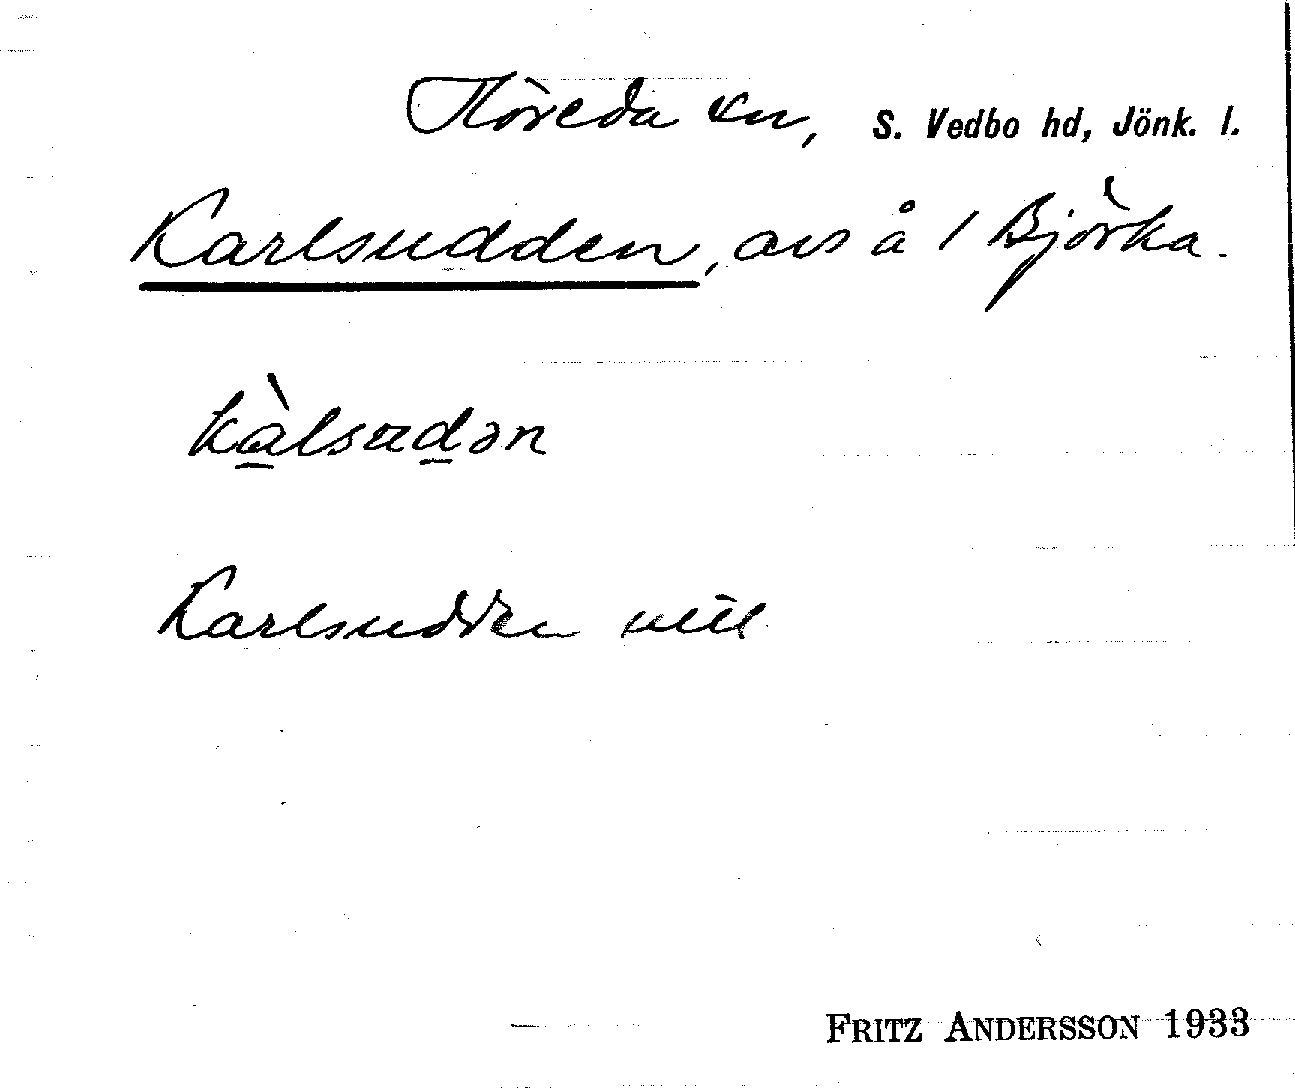 Flöreda sn, S. Vedbo hd, Jönk. l.
Karlsudden, avs å 1 Björka.
kàlsudən
Karlsudden
FRITZ ANDERSSON 1933